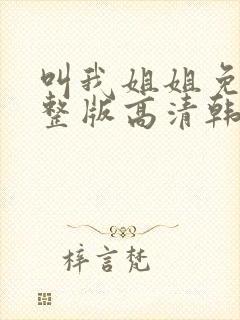 叫我姐姐免
整版高清韩
梓言梵